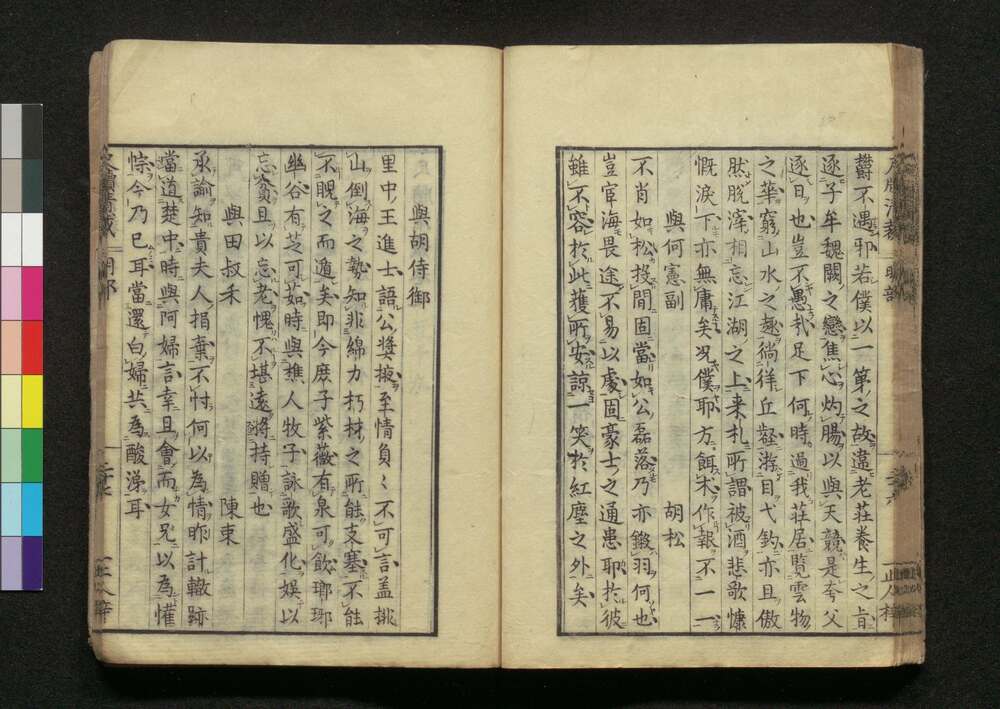 欝不遇邪若僕以一第之故違老莊養生之旨
逐子牟魏闕之戀焦心灼腸以與天競是夸父
逐日也豈不愚哉足下何時過我荘居覧雲物
之華窮山水之趣徜徉丘壑游目弋釣亦且傲
然脱滓相忘江湖之上来札所謂被酒悲歌慷
慨涙下亦無庸矣况僕耶方餌朮作報不一一
與何憲副 胡松
不肖如松投閒固當如公磊落乃亦鎩羽何也
豈宦海畏途不易以處固豪士之通患耶於彼
雖不容於此獲所安諒一笑於紅塵之外矣
與胡侍御
里中王進士語公奬掖至情負々不可言葢排
山倒海之勢知非綿力朽材之所能支塞不能
不睨之而遁矣即今庶子紫薇有泉可飲瑯琊
幽谷有芝可茹時與樵人牧子詠歌盛化娯以
忘貧且以忘老愧不堪遠將持贈也
與田叔禾 陳束
承諭知貴夫人捐棄不忖何以為情昨計轍跡
當道楚中時與阿婦言幸且會而女兄以為懽
悰今乃已耳當還白婦共為酸澡耳